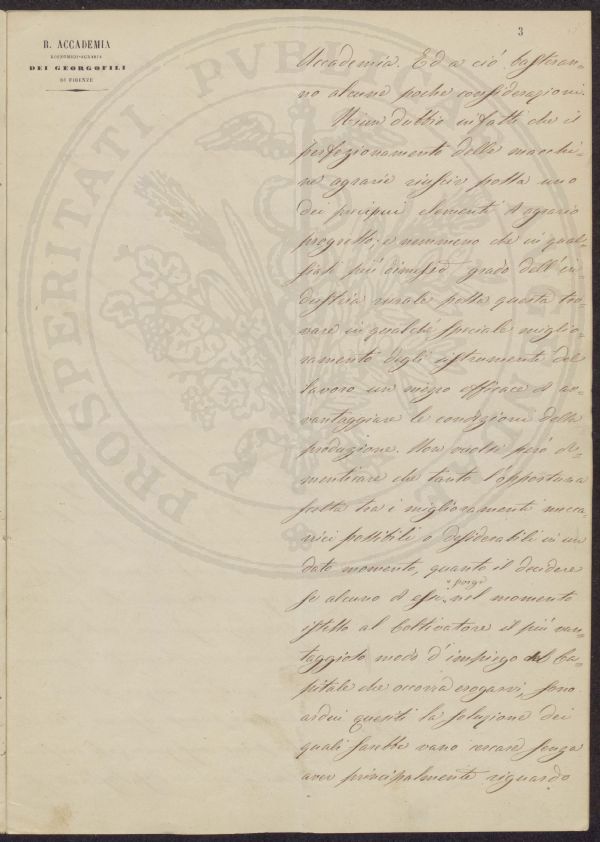 3
R. ACCADEMIA
ECONOMICO-AGRARIA
DEI GEORGOFILI
DI FIRENZE
PROSPERITATI PUBLICAE
Accademia. Ed a ciò basteran-
no alcune poche considerazioni.
Niun dubbio infatti che il
perfezionamento delle macchi-
ne agrarie riuscir possa uno
dei precipui elementi d'agrario
progresso; e nemmeno che in qual-
siasi più dimesso grado dell'in-
dustria rurale possa questa tro-
vare in qualche speciale miglio-
ramento degli istrumenti del
lavoro un mezzo efficace d'av-
vantaggiare le condizioni della
produzione. Non vuolsi però di-
menticare che tanto l'opportuna
scelta tra i miglioramenti mecca-
nici possibili o desiderabili in un
dato momento, quanto il decidere
se alcuno d'essi porga nel momento
istesso al Coltivatore il più van-
taggioso modo d'impiego del Ca-
pitale che occorra erogarvi, sono
ardui quesiti la soluzione dei
quali sarebbe vano cercare senza
aver principalmente riguardo